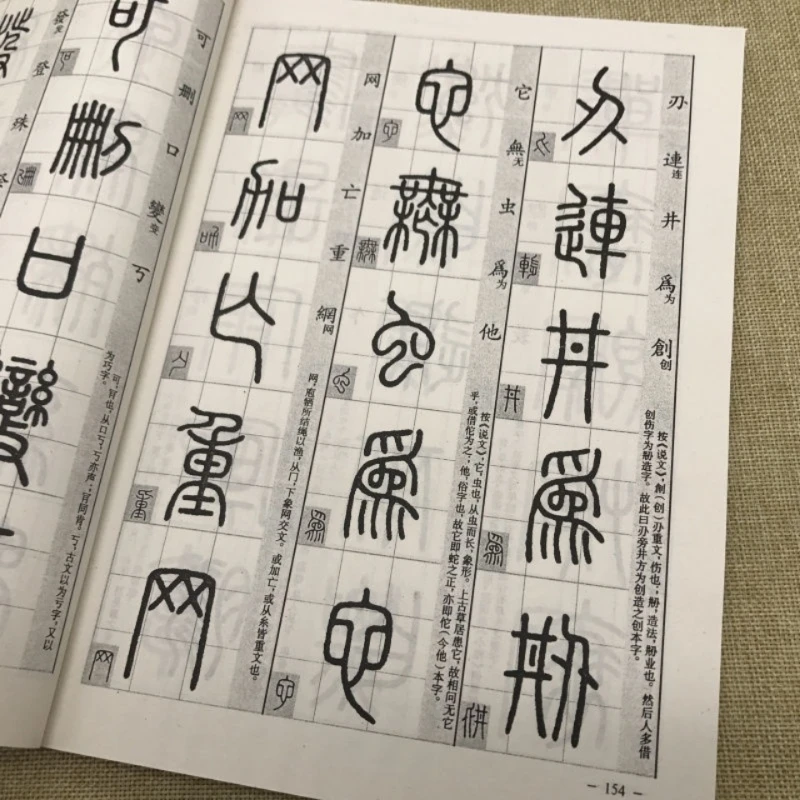 刅 連连 井 為为 創创
按《说文》,刱(创)刅重文,伤也;刱,造法,刱业也。然后人多借
创伤字为刱造字。故此曰刅旁井方为创造之创本字。
它 無无 虫 為为 他
按《说文》:它,虫也,从虫而长,象形。上古草居患它,故相问无它
乎,或借佗为之;他,俗字也,故它即蛇之正,亦即佗(今他)本字。
网 加 亡 重 網网
网,庖牺所结绳以渔,从冂,下象网交文。或加亡,或从糸皆重文也。
可 刪 口 變变 丂
可,肎也,从口丂,丂亦声;肎同肯。丂,古文以为亏字,又以
为巧字。
發发 登 殊
— 154 —